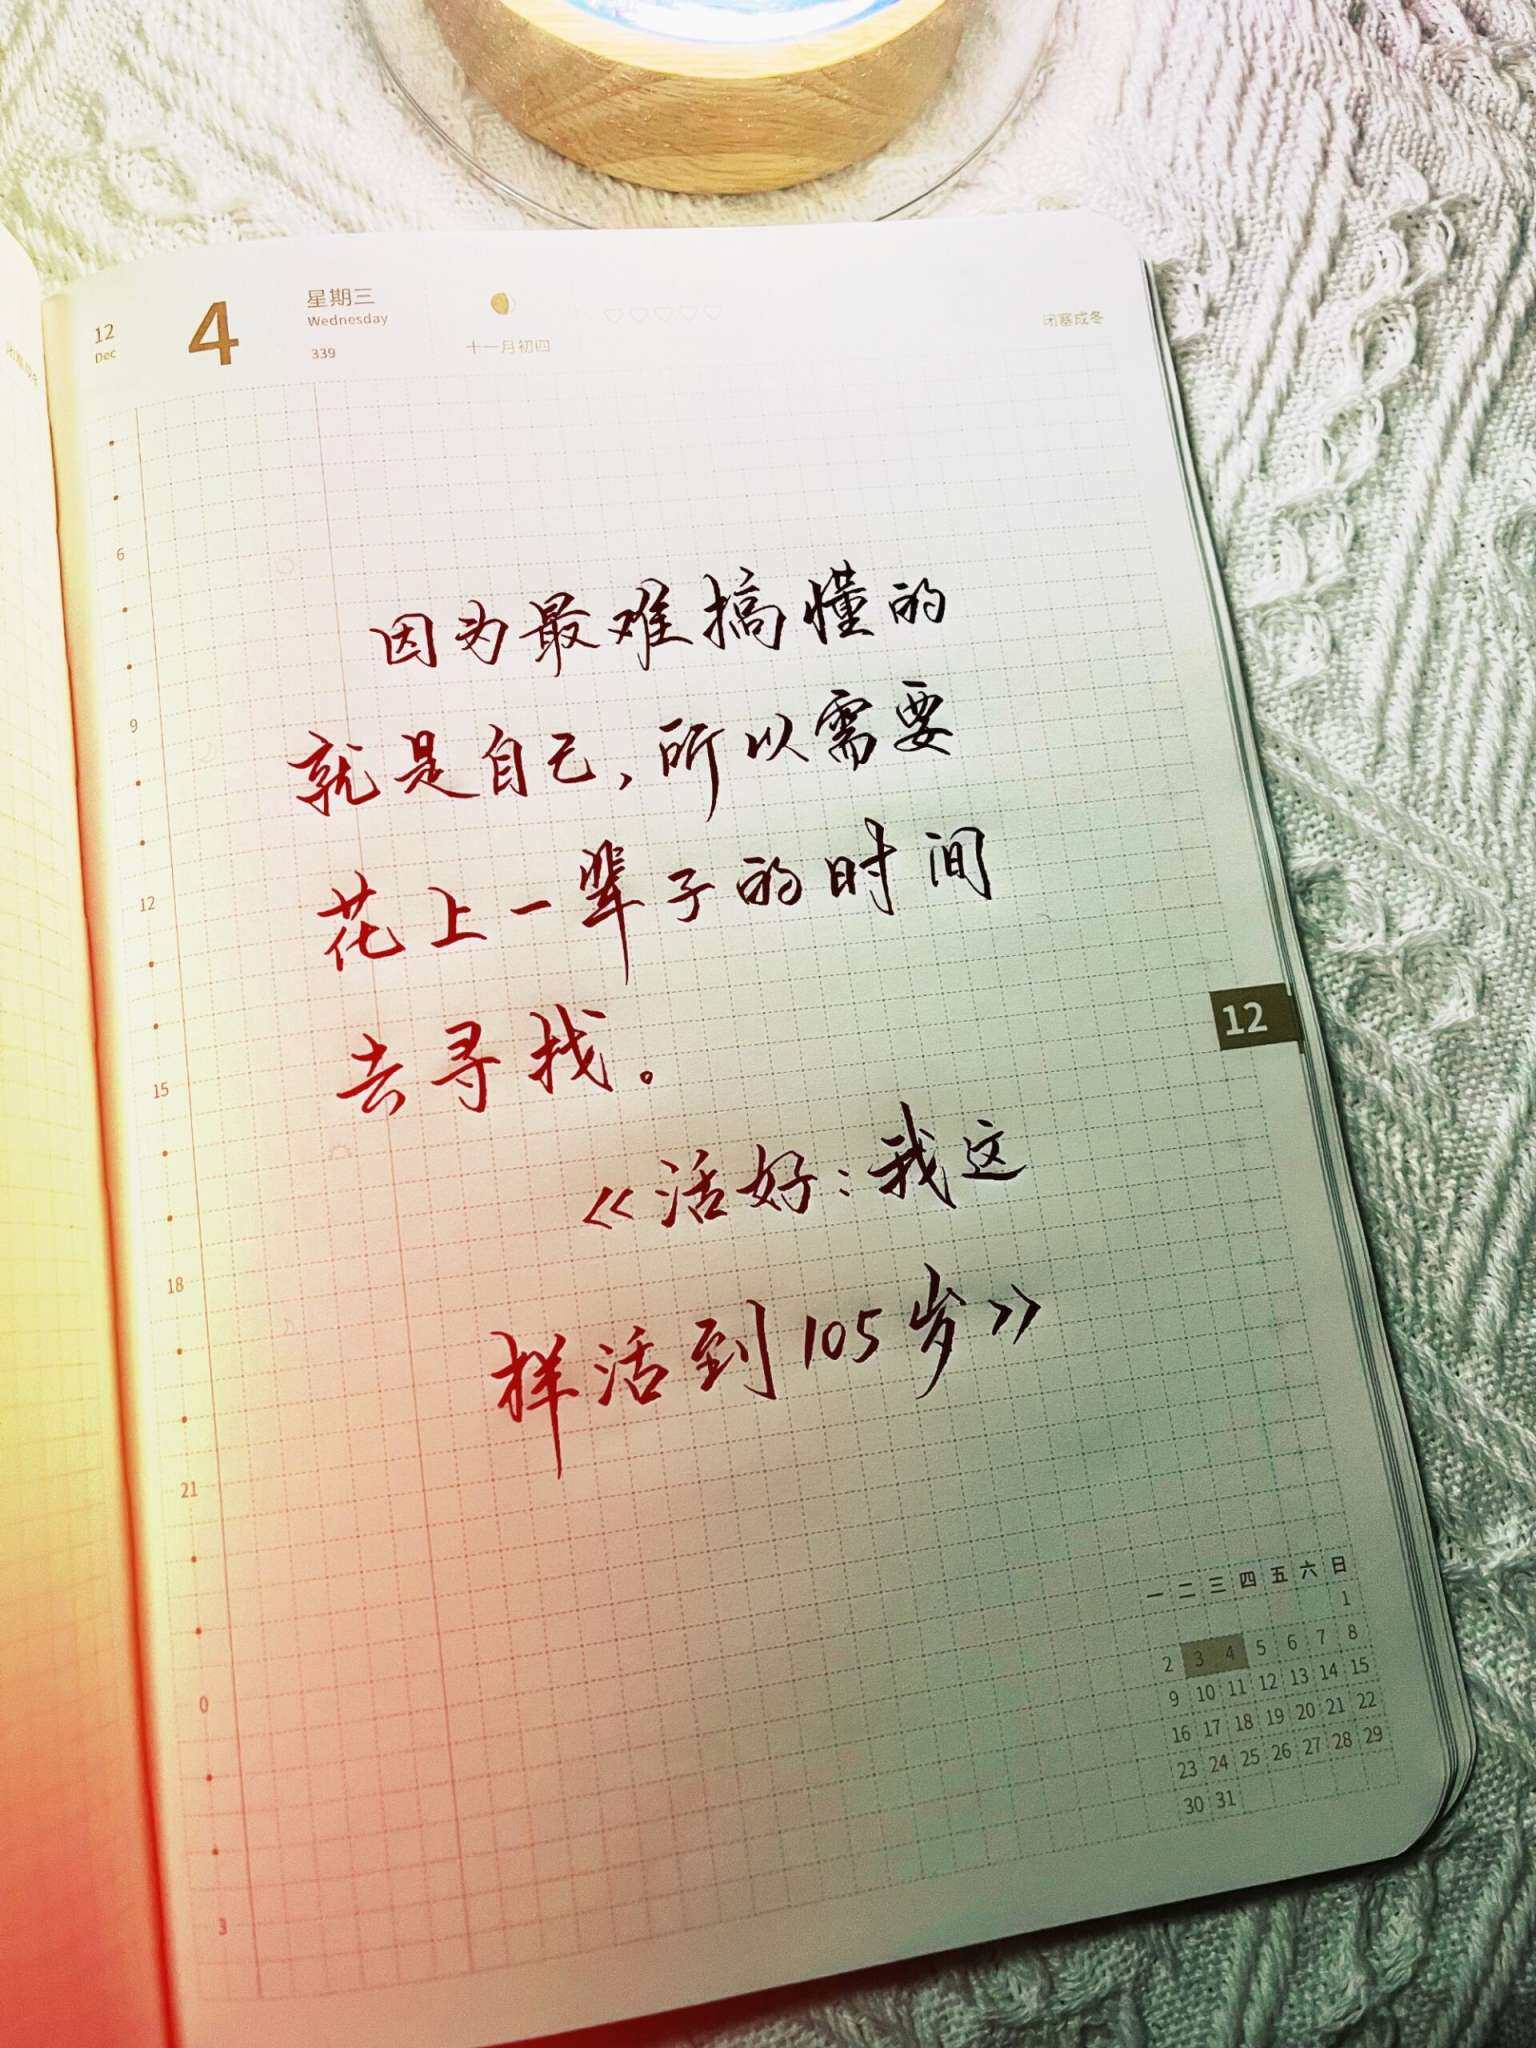 12
Dec
4
星期三
Wednesday
339
十一月初四
闭塞成冬
因为最难搞懂的
就是自己,所以需要
花上一辈子的时间
去寻找。
《活好:我这
样活到105岁》
6
9
12
15
18
21
0
3
12
一 二 三 四 五 六 日
1
2 3 4 5 6 7 8
9 10 11 12 13 14 15
16 17 18 19 20 21 22
23 24 25 26 27 28 29
30 31